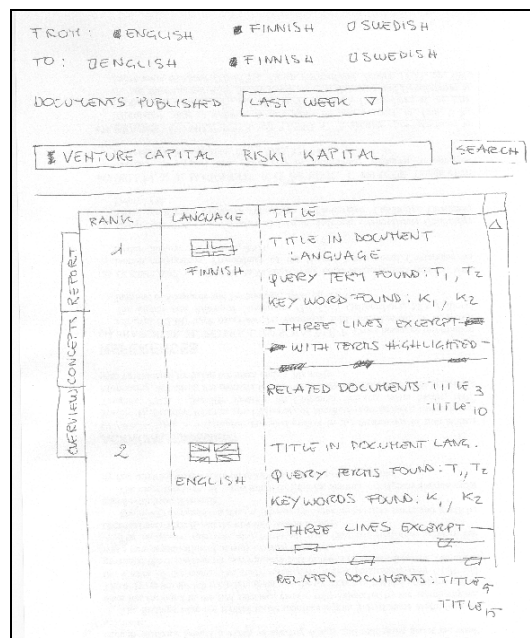 FROM: ENGLISH FINNISH SWEDISH
TO: ENGLISH FINNISH SWEDISH
DOCUMENTS PUBLISHED LAST WEEK
VENTURE CAPITAL RISKI KAPITAL SEARCH
RANK LANGUAGE TITLE
1 TITLE IN DOCUMENT
LANGUAGE
FINNISH
QUERY TERM FOUND: T1, T2
KEY WORD FOUND: K1, K2
- THREE LINES EXCERPT
WITH TERMS HIGHLIGHTED -
RELATED DOCUMENTS TITLE 3
TITLE 10
REPORT
CONCEPTS
OVERVIEW
2 TITLE IN DOCUMENT LANG.
ENGLISH
QUERY TERMS FOUND: T1, T2
KEYWORDS FOUND: K1, K2
- THREE LINES EXCERPT -
RELATED DOCUMENTS: TITLE 9
TITLE 15